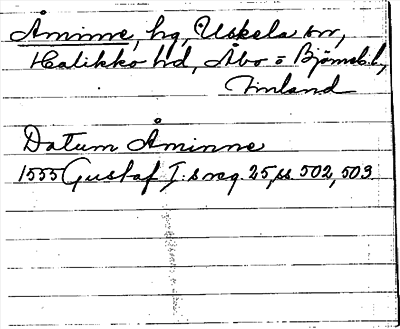 Åminne, hg, Uskela sn,
Halikko hd, Åbo = Björneb. l.,
Finland
Datum Åminne
1555 Gustaf I:s reg. 25, ss. 502, 503